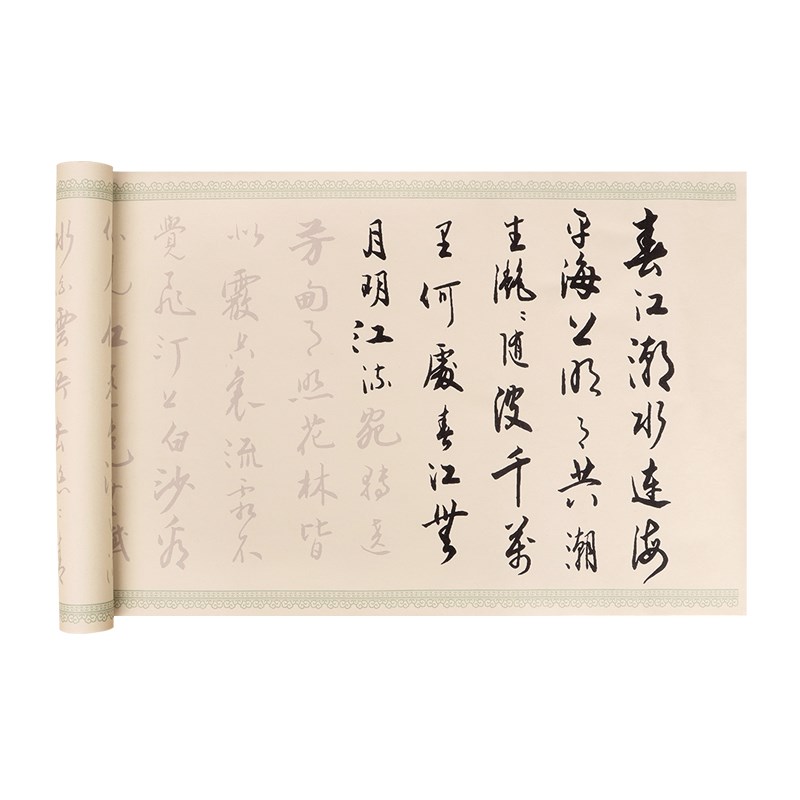 春江潮水連海
平海上明月共潮
生灔〻随波千萬
里何處春江無
月明江流宛轉遶
芳甸月照花林皆
似霰空裏流霜不
覺飛汀上白沙看